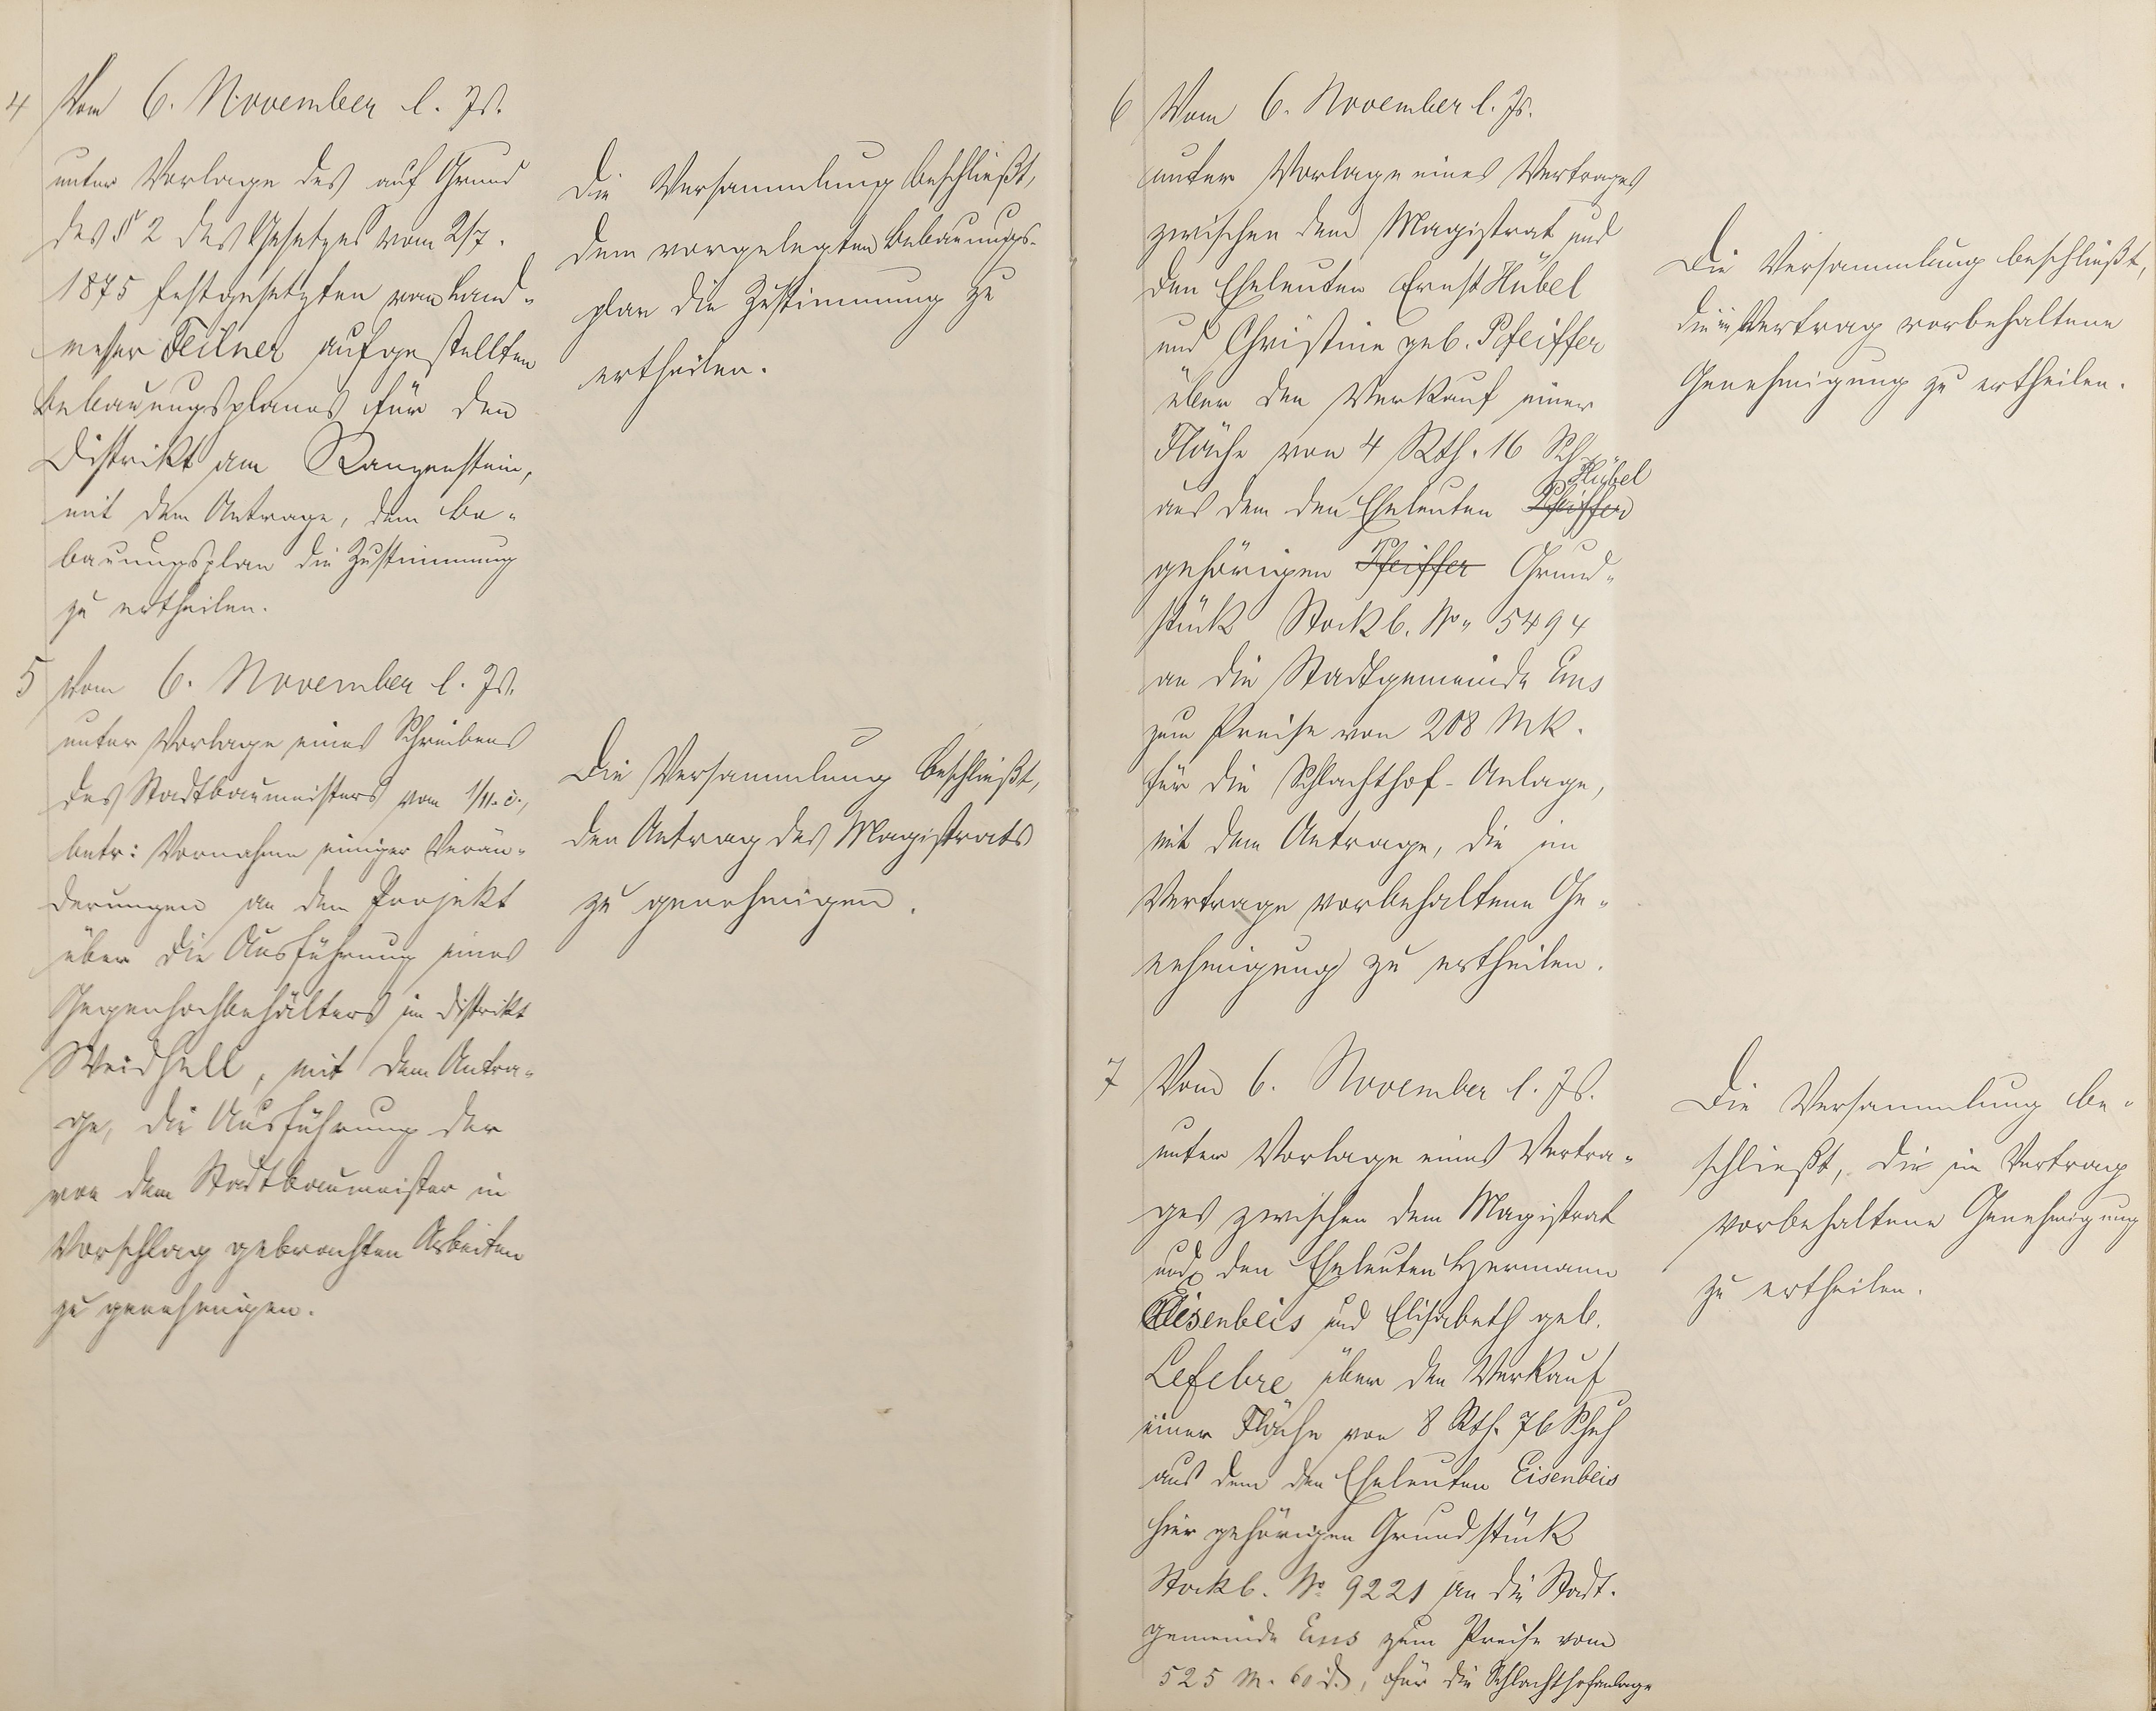 4 Vom 6. November l. Js.
unter Vorlage des auf Grund
des § 2 des Gesetzes vom 2/7.
1875 festgesetzten vom Land-
messer Feilner aufgestellten
Bebauungsplanes für den
Distrikt am
mit dem Antrage, dem Be-
bauungsplan die Zustimmung
zu ertheilen.
Die Versammlung beschließt,
dem vorgelegten Bebauungs-
plan die Zustimmung zu
ertheilen.
5 Vom 6. November l. Js.
unter Vorlage eines Schreibens
des Stadtbaumeisters vom 1/11. c.,
betr: Vornahme einiger Verän-
derungen an dem Projekt
über die Ausführung eines
Gegenhochbehälters im Distrikt
Weidhell, mit dem Antra-
ge, die Ausführung der
von dem Stadtbaumeister in
Vorschlag gebrachten Arbeiten
zu genehmigen.
Die Versammlung beschließt,
den Antrag des Magistrats
zu genehmigen.
6 Vom 6. November l. Js.
unter Vorlage eines Vertrages
zwischen dem Magistrat und
den Eheleuten Ernst Hübel
und Christine geb. Pfeiffer
über den Verkauf einer
Fläche von 4 Rth. 16 Sch.
Hübel
aus dem den Eheleuten Pfeiffer
gehörigen Pfeiffer Grund-
stück Stockb. No. 5494
an die Stadtgemeinde Ems
zum Preise von 208 Mk.
für die Schlachthof-Anlage,
mit dem Antrage, die im
Vertrage vorbehaltene Ge-
nehmigung zu ertheilen.
Die Versammlung beschließt,
die im Vertrag vorbehaltene
Genehmigung zu ertheilen.
7 Vom 6. November l. Js.
unter Vorlage eines Vertra-
ges zwischen dem Magistrat
und den Eheleuten Hermann
Eisenbeis und Elisabeth geb.
Lefebre über den Verkauf
einer Fläche von 8 Rth. 76 Schuh
aus dem den Eheleuten Eisenbeis
hier gehörigen Grundstück
Stockb. No 9221 an die Stadt-
gemeinde Ems zum Preise von
525 M. 60 d., für die Schlachthofanlage
Die Versammlung be-
schließt, die im Vertrag
vorbehaltene Genehmigung
zu ertheilen.